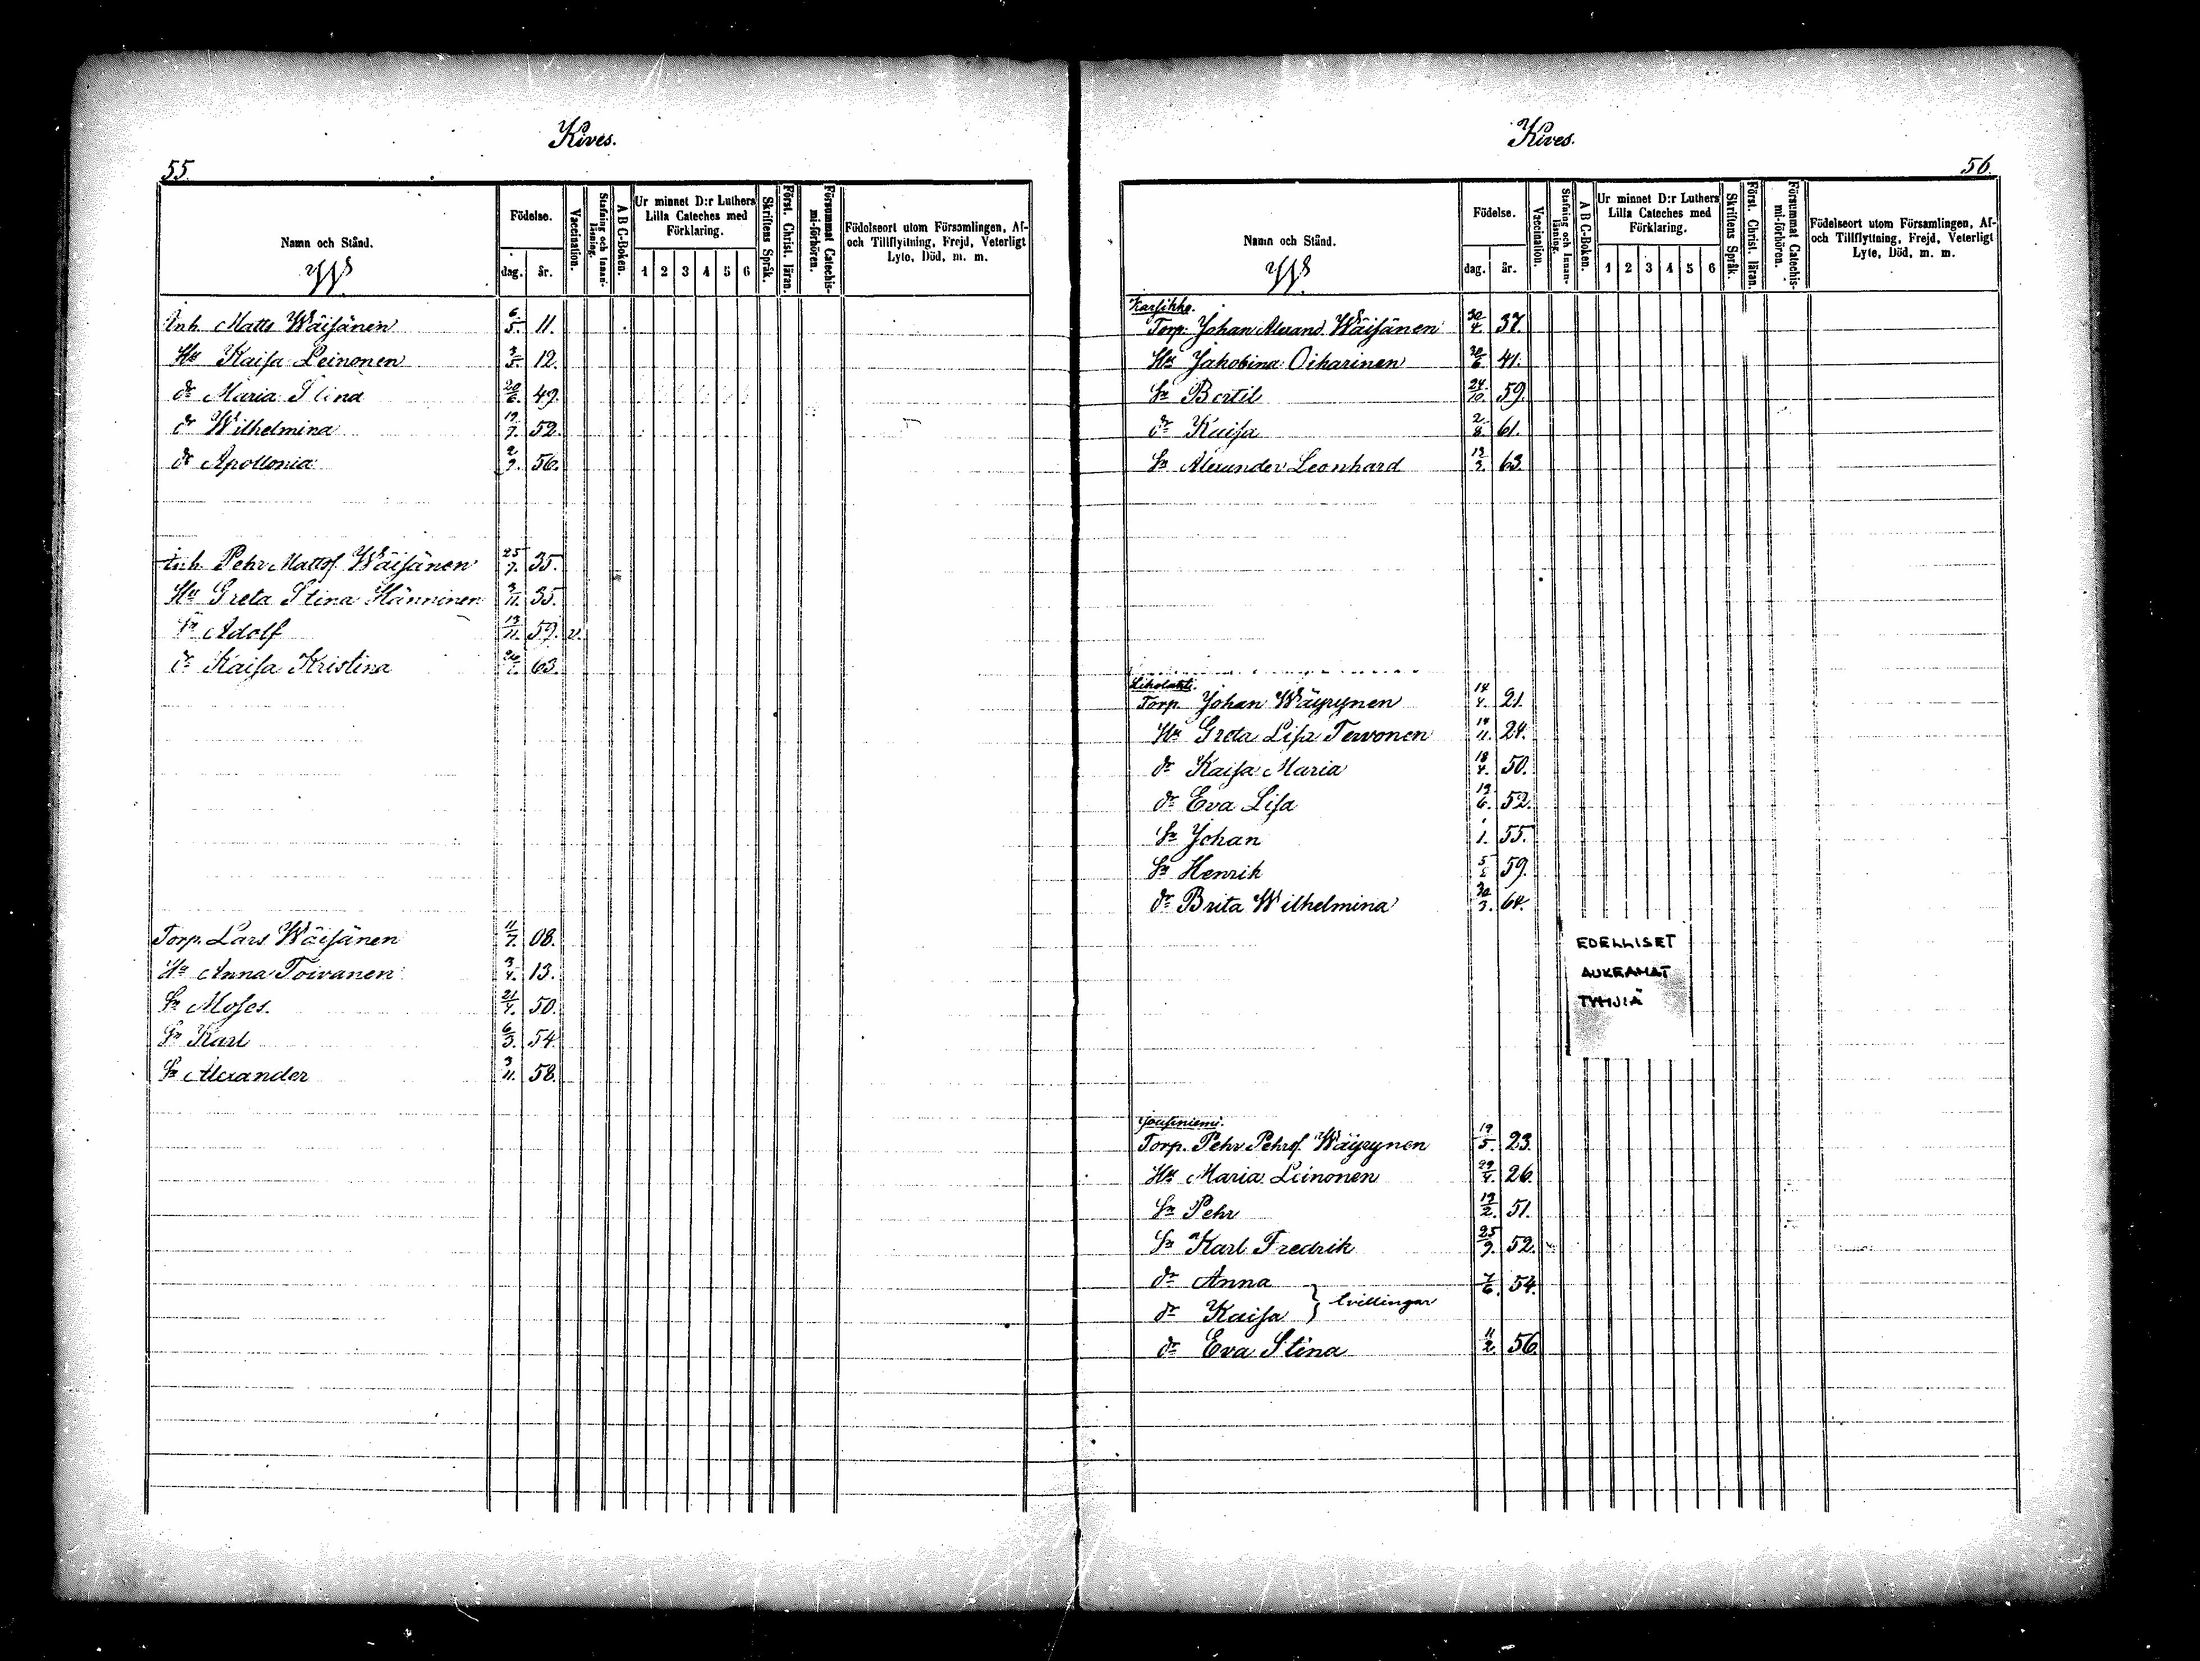 Kives.
55.
Namn och Stånd.
Födelse.
dag. år.
Vaccination.
Stafning och Innanläsning.
A B C-Boken.
Ur minnet D:r Luthers
Lilla Cateches med
Förklaring.
1 2 3 4 5 6
Skriftens Språk.
Först. Christ. läran.
Försummat Catechismi-förhören.
Födelseort utom Församlingen, Af-
och Tillflyttning, Frejd, Veterligt
Lyte, Död, m. m.
Inh. Matts Wäisänen 6/5. 11.
Hu Kaisa Leinonen 3/5. 12.
dr Maria Stina 20/6. 49.
dr Wilhelmina 19/7. 52.
dr Apollonia 2/9. 56.
Inh. Pehr Mattsf. Wäisänen 25/7. 35.
Hu Greta Stina Hänninen 3/11. 35.
Sn Adolf 13/11. 59. v.
dr Kaisa Kristina 63.
Torp. Lars Wäisänen 11/7. 08.
Hu Anna Toivanen 3/4. 13.
Sn Moses. 21/4. 50.
Sn Karl 6/3. 54.
Sn Alexander 3/11. 58.
Kives.
56.
Namn och Stånd.
Födelse.
dag. år.
Vaccination.
Stafning och Innanläsning.
A B C-Boken.
Ur minnet D:r Luthers
Lilla Cateches med
Förklaring.
1 2 3 4 5 6
Skriftens Språk.
Först. Christ. läran.
Försummat Catechismi-förhören.
Födelseort utom Församlingen, Af-
och Tillflyttning, Frejd, Veterligt
Lyte, Död, m. m.
Karsikko.
Torp. Johan Alexand. Wäisänen 30/4. 37.
Hu Jakobina Oikarinen 30/6. 41.
Sn Bertil 24/10. 59.
dr Kaisa 2/8. 61.
Sn Alexander Leonhard 12/3. 63.
Torp. Johan Wäyrynen 14/4. 21.
Hu Greta Lisa Tervonen 14/11. 24.
dr Kaisa Maria 18/4. 50.
dr Eva Lisa 19/6. 52.
Sn Johan 1/1. 55.
Sn Henrik 59.
dr Brita Wilhelmina 30/3. 64.
EDELLISET
AUKEAMAT
TYHJIÄ
Torp. Pehr Pehrsf. Wäyrynen 19/5. 23.
Hu Maria Leinonen 29/4. 26.
Sn Pehr 19/2. 51.
Sn Karl Fredrik 25/9. 52.
dr Anna 7/6. 54.
dr Kaisa } tvillingar
dr Eva Stina 11/2. 56